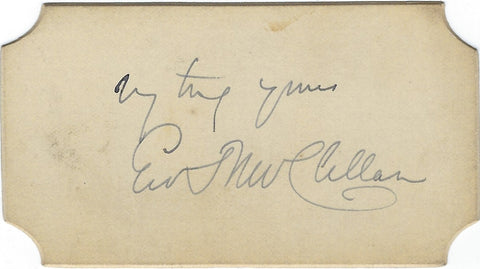 Very truly yours
Geo B McClellan